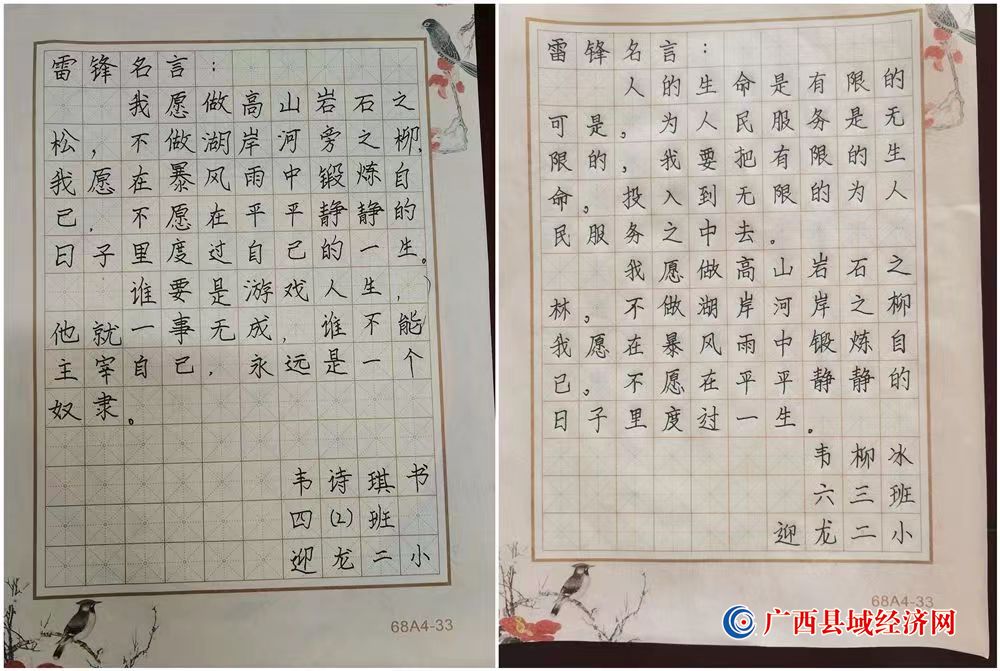 雷锋名言：
我愿做高山岩石之
松，不做湖岸河旁之柳，
我愿在暴风雨中锻炼自
己，不愿在平平静静的
日子里度过自己的一生。
谁要是游戏人生，
他就一事无成，谁不能
主宰自己，永远是一个
奴隶。
韦诗琪书
四（2）班
迎龙二小
68A4-33
雷锋名言：
人的生命是有限的
可是。为人民服务是无
限的，我要把有限的生
命。投入到无限的为人
民服务之中去。
我愿做高山岩石之
林。不做湖岸河岸之柳
我愿在暴风雨中锻炼自
己。不愿在平平静静的
日子里度过一生。
韦柳冰
六三班
迎龙二小
68A4-33
广西县域经济网